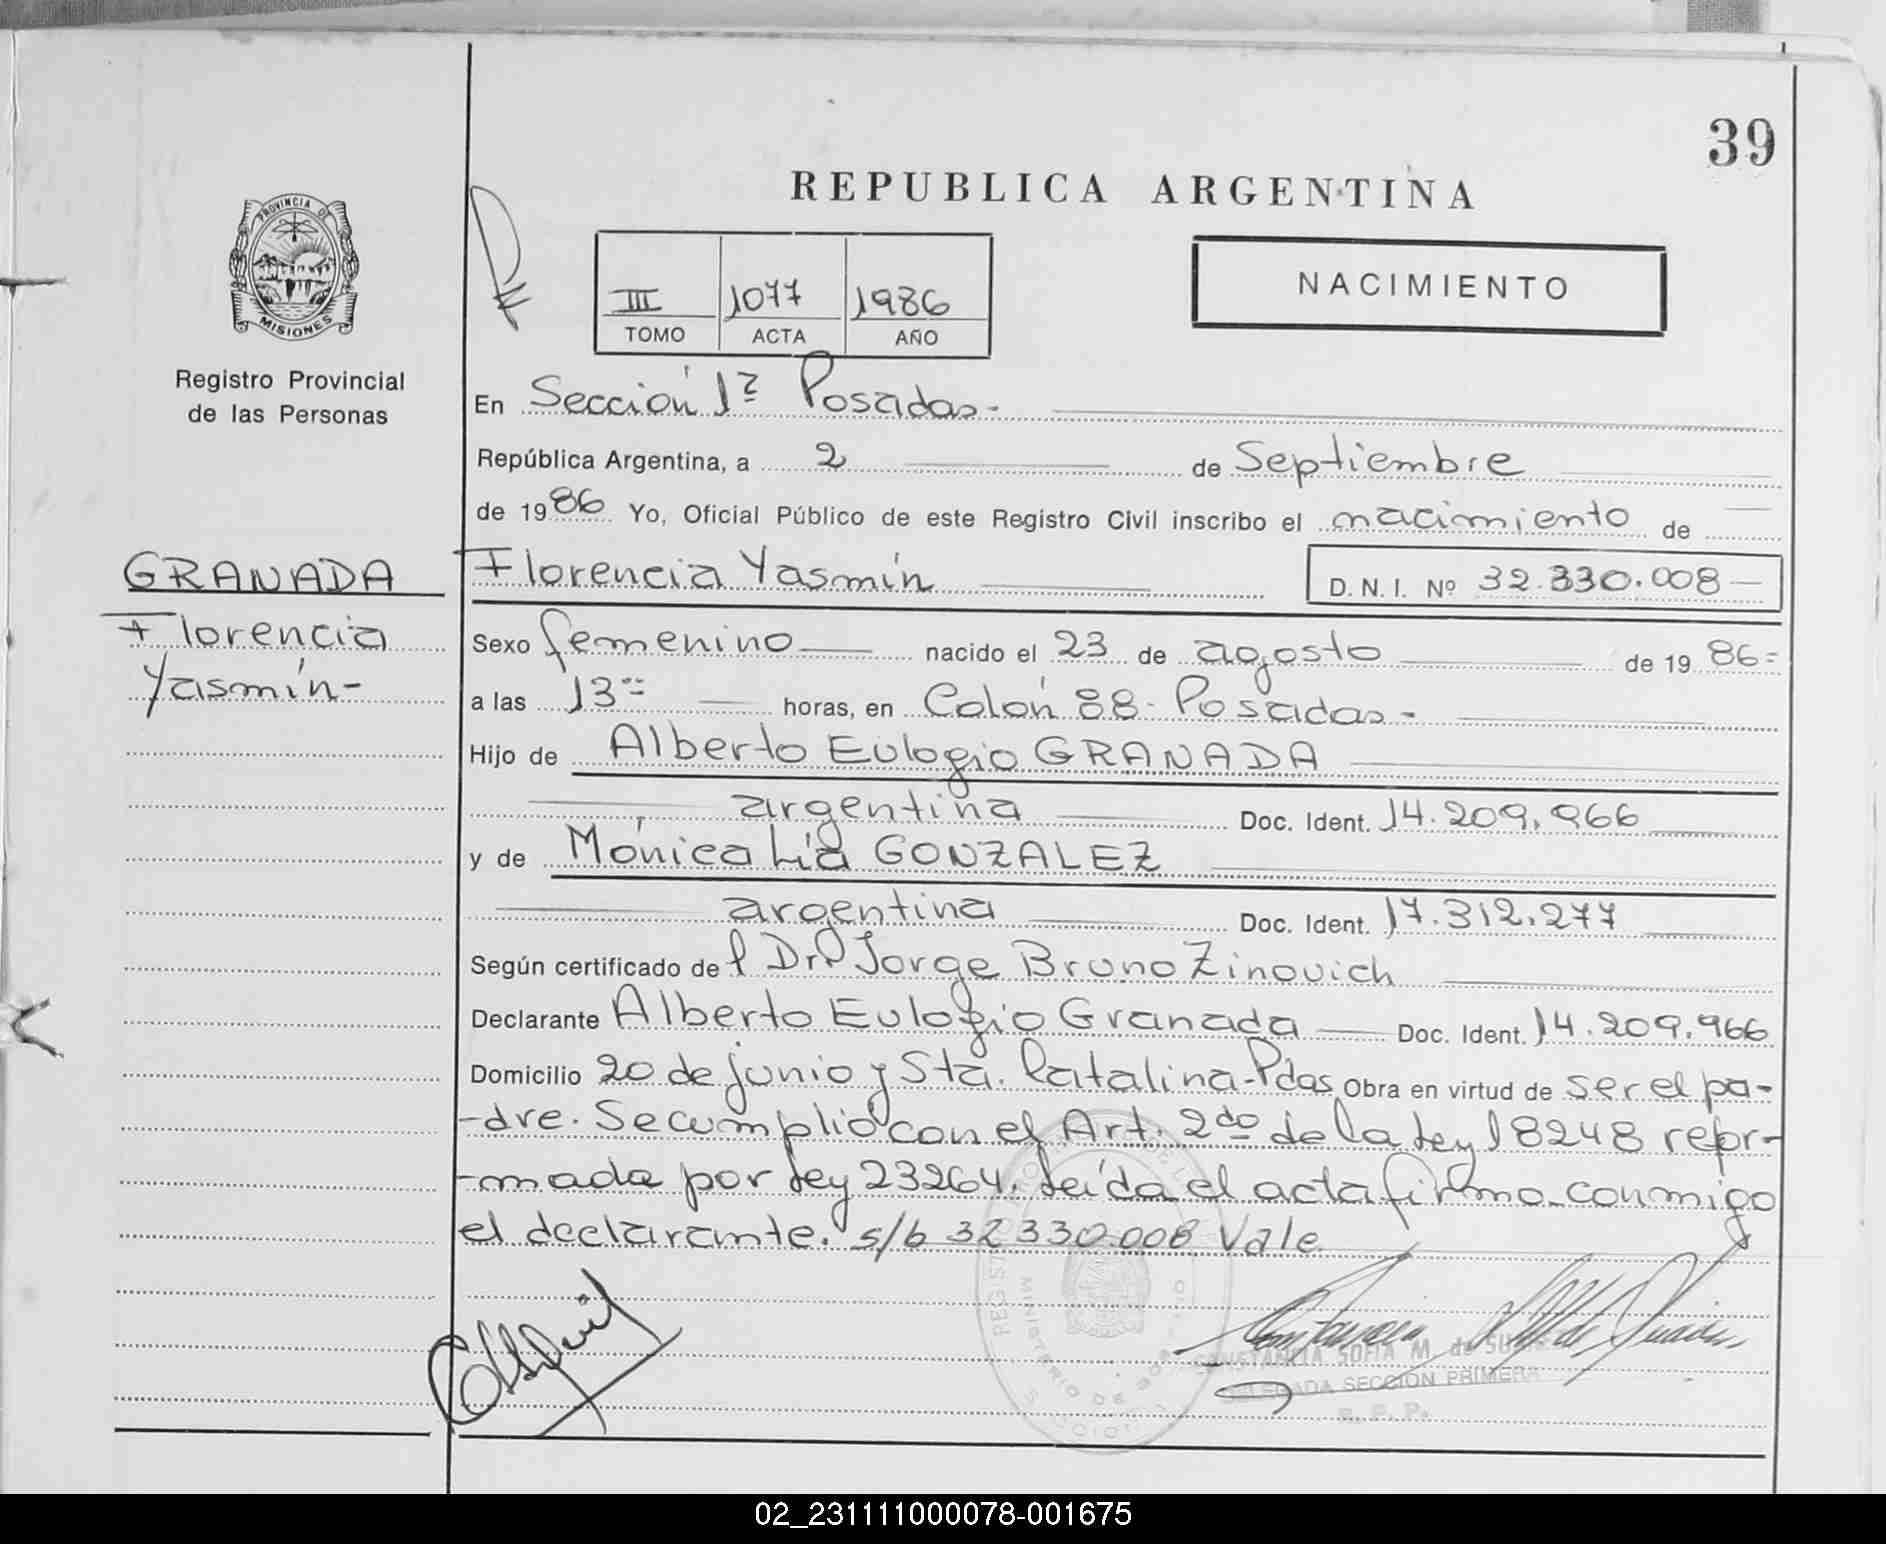 39
REPUBLICA ARGENTINA
PROVINCIA DE
MISIONES
Registro Provincial
de las Personas
III 1077 1986
TOMO ACTA AÑO
NACIMIENTO
En Sección 1ª Posadas.-
República Argentina, a 2 de Septiembre
de 1986 Yo, Oficial Público de este Registro Civil inscribo el nacimiento de
GRANADA
Florencia
Yasmín-
Florencia Yasmín D. N. I. Nº 32.330.008
Sexo femenino nacido el 23 de agosto de 1986=
a las 13 horas, en Colón 88- Posadas.-
Hijo de Alberto Eulogio GRANADA
argentina Doc. Ident. 14.209.966
y de Mónica Lía GONZALEZ
argentina Doc. Ident. 17.312.277
Según certificado del Dr. Jorge Bruno Zinovich
Declarante Alberto Eulogio Granada Doc. Ident. 14.209.966
Domicilio 20 de junio y Sta. Catalina-Pdas Obra en virtud de ser el pa-
-dre. Se cumplió con el Art. 2do de la Ley 18248 refor-
-mada por Ley 23264. Leída el acta firma conmigo
el declarante. s/b 32330.008 Vale.
CONSTANCIA SOFIA M. de
DELEGADA SECCION PRIMERA
R. P. P.
02_231111000078-001675